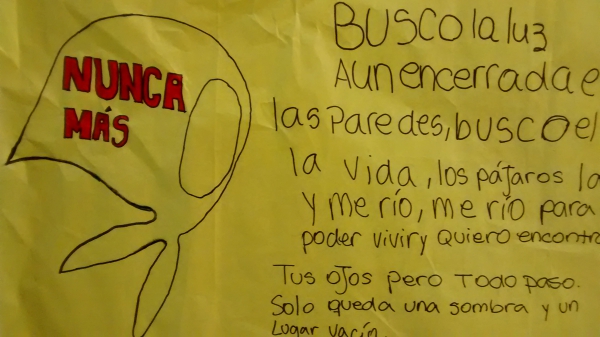 NUNCA
MÁS
BUSCO la luz
Aun encerrada e
las Paredes, busco el
la vida, los pájaros la
y me río, me río para
poder vivir y quiero encontra
Tus ojos pero Todo paso.
Solo queda una sombra y un
Lugar vacío.